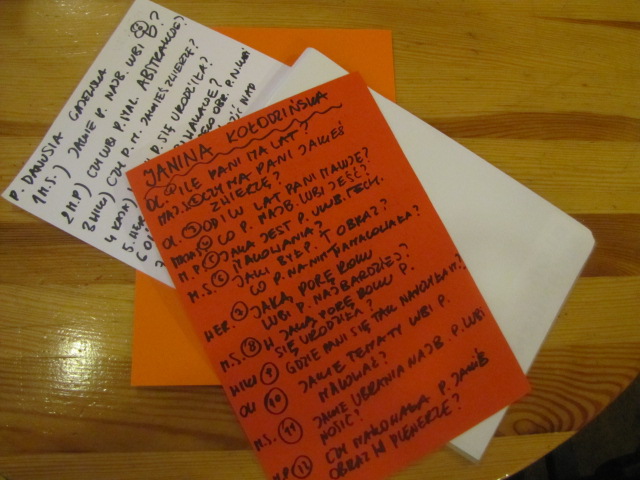 P. DANUSIA GADEWSKA
1 M.S.) JAKIE P. NAJB. LUBI
2 M.P) CZY LUBI P. MAL. ABSTRAKCJE?
3 NIKU) CZY P. M. JAKIEŚ ZWIERZĘ?
4 KAJA)
P. SIĘ URODZIŁA?
5. HER
6 OL
JANINA KOŁODZIŃSKA
OL. 1 ILE PANI MA LAT?
MAJ. CZY MA PANI JAKIEŚ
ZWIERZĘ?
OL. 3 OD ILU LAT PANI MALUJE?
CO P. NAJB. LUBI JEŚĆ?
M.P. 5 JAKA JEST P. ULUB. TECH.
MALOWANIA?
M.S. 6 JAKI BYŁ P. 1 OBRAZ?
CO P. NA NIM NAMALOWAŁA?
HER. 7 JAKĄ PORĘ ROKU
LUBI P. NAJBARDZIEJ?
M.S. 8 W JAKĄ PORĘ ROKU P.
SIĘ URODZIŁA?
NIKU 9 GDZIE PANI SIĘ TAK NAUCZYŁA M.?
OL 10 JAKIE TEMATY LUBI P.
MALOWAĆ?
M.S. 11 JAKIE UBRANIA NAJB. P. LUBI
NOSIĆ?
M.P 12 CZY MALOWAŁA P. JAKIŚ
OBRAZ W PLENERZE?